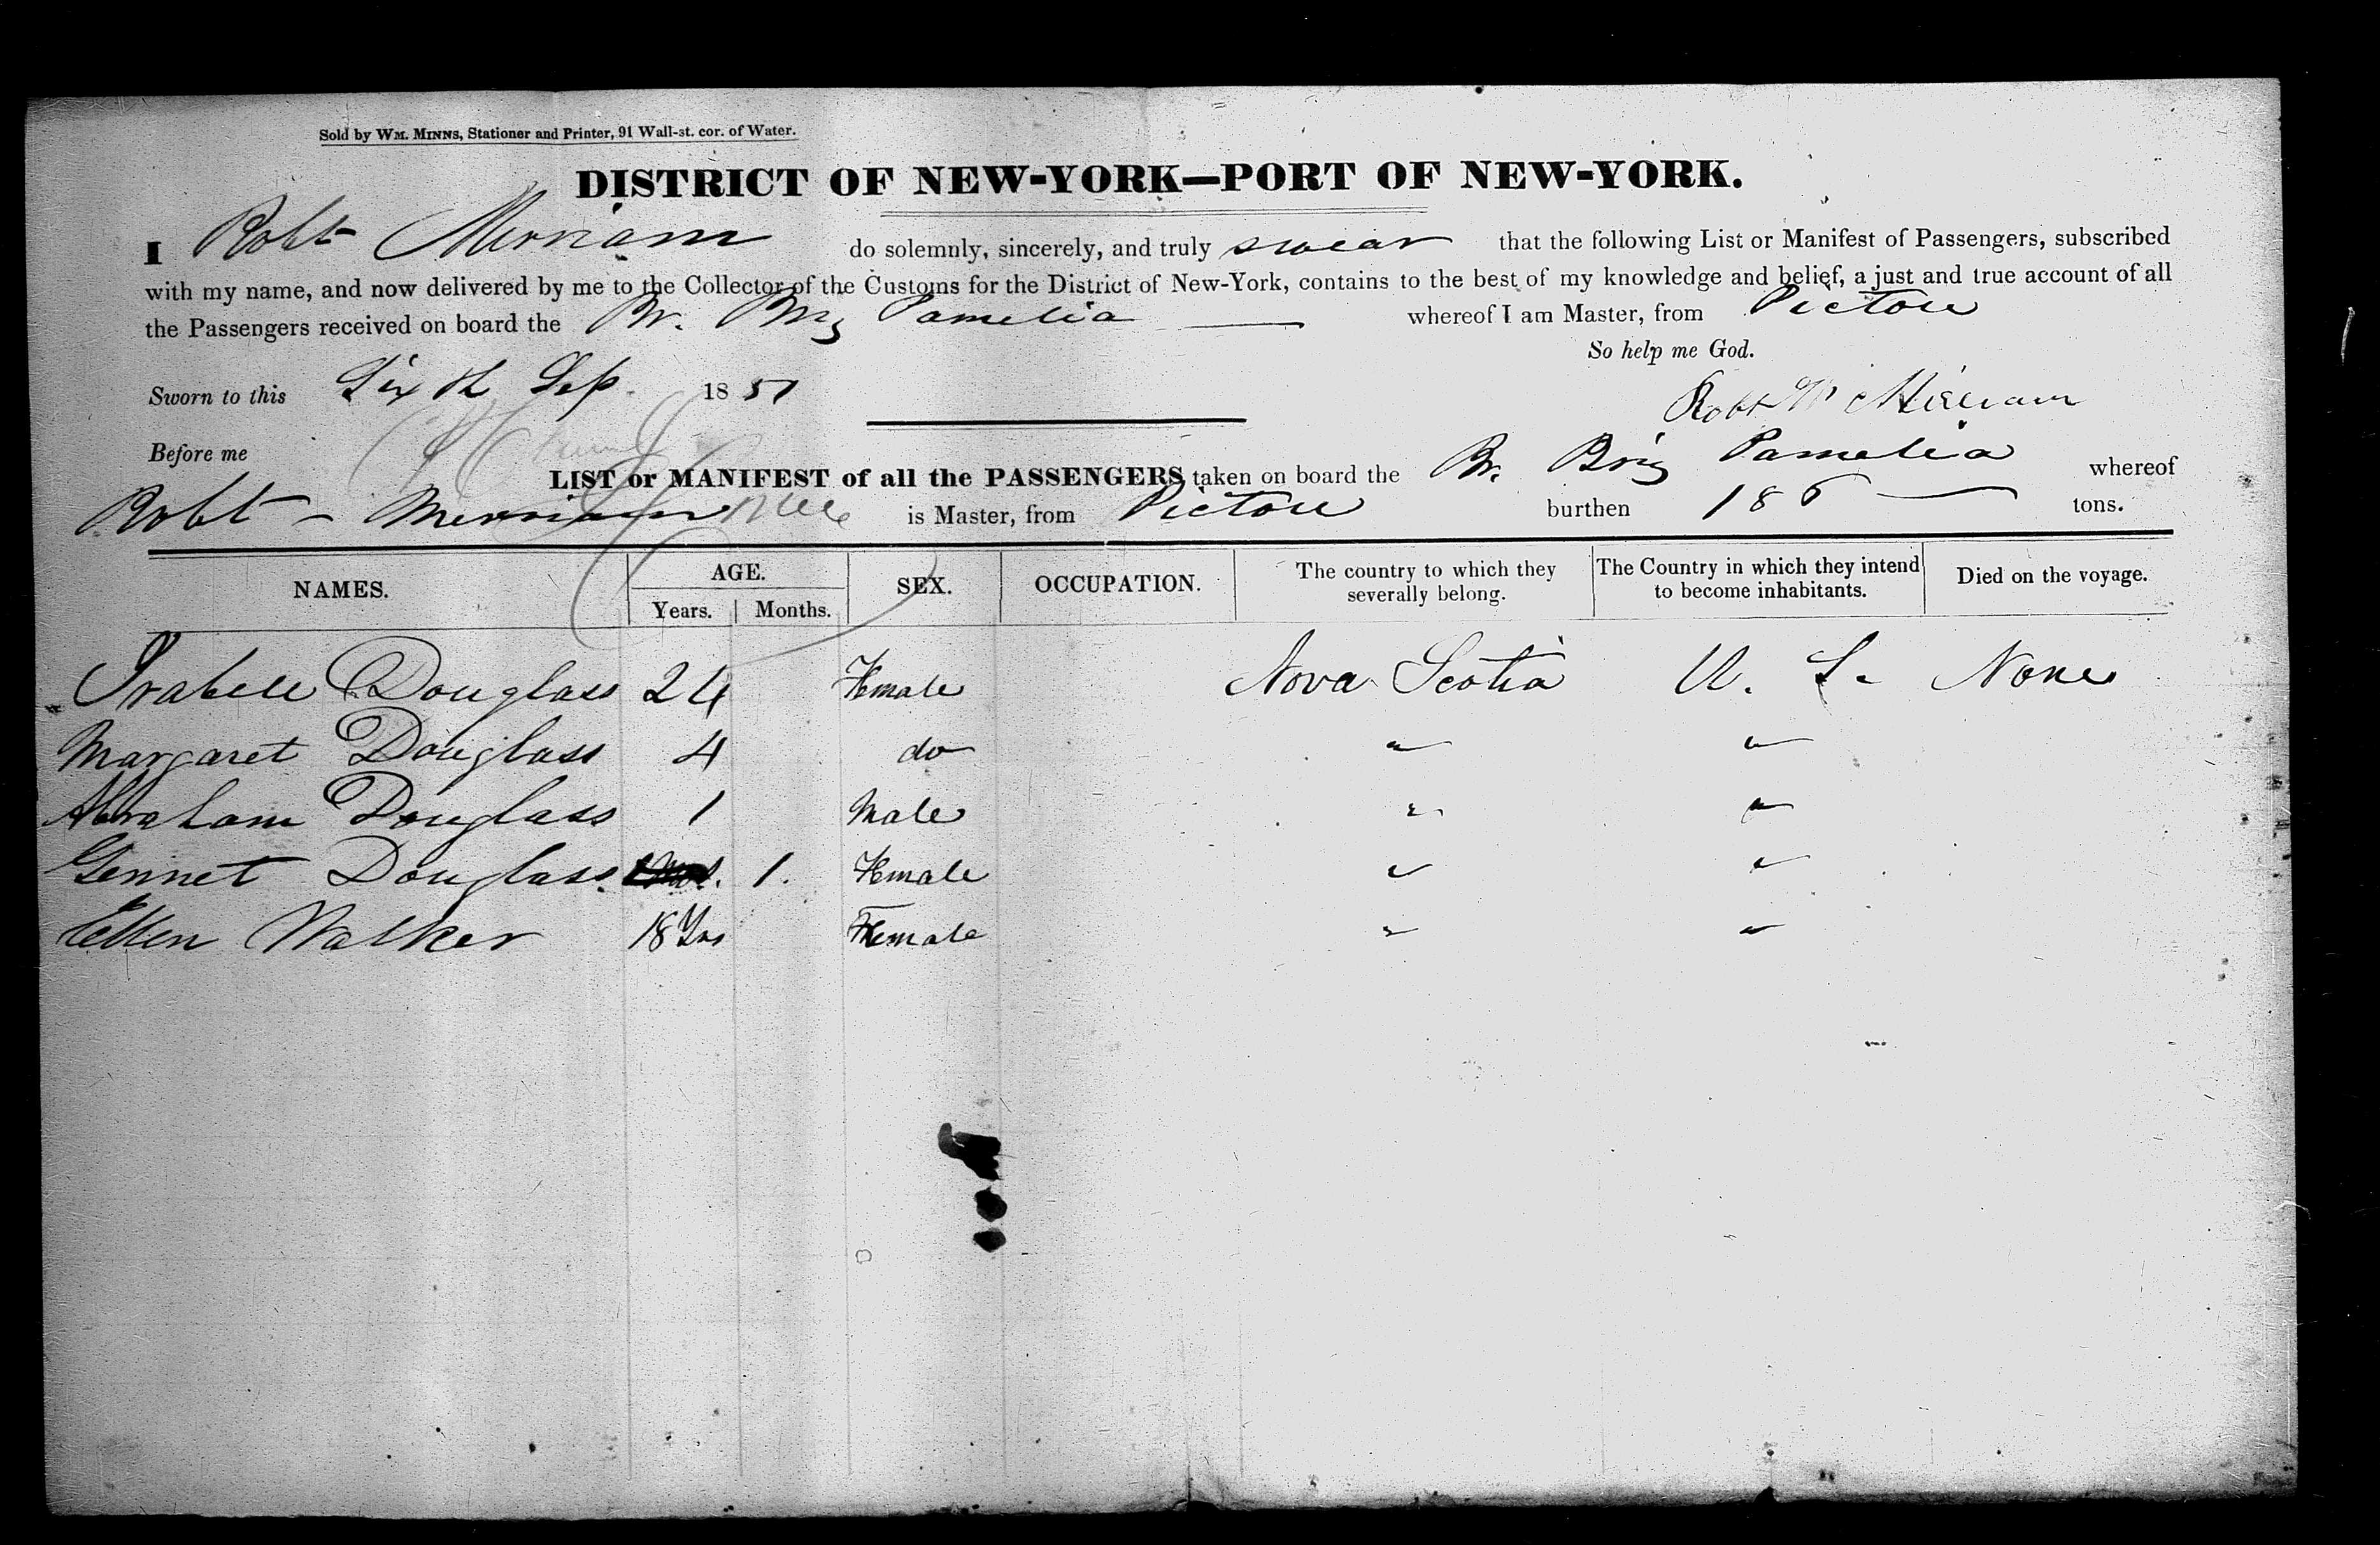 Sold by WM. MINNS, Stationer and Printer, 91 Wall-st. cor. of Water.
DISTRICT OF NEW-YORK—PORT OF NEW-YORK.
I Robt Merriam do solemnly, sincerely, and truly swear that the following List or Manifest of Passengers, subscribed
with my name, and now delivered by me to the Collector of the Customs for the District of New-York, contains to the best of my knowledge and belief, a just and true account of all
the Passengers received on board the Br. Brig Pamelia whereof I am Master, from Pictou
So help me God.
Sworn to this Sixth Sep. 1851
Robt Merriam
Before me
LIST or MANIFEST of all the PASSENGERS taken on board the Br. Brig Pamelia whereof
Robt - Merriam is Master, from Pictou burthen 186 tons.
NAMES. AGE. SEX. OCCUPATION. The country to which they severally belong. The Country in which they intend to become inhabitants. Died on the voyage.
Years. Months.
Isabell Douglass 24 Female Nova Scotia U. S. None
Margaret Douglass 4 do " "
Abraham Douglass 1 Male " "
Gennet Douglass 1. Female " "
Ellen Walker 18 Yrs Female " "